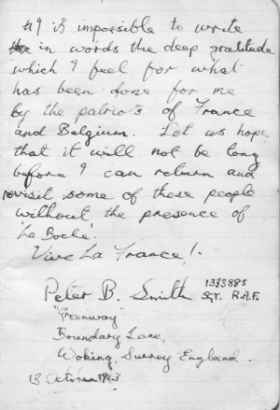 It is impossible to write
in words the deep gratitude
which I feel for what
has been done for me
by the patriots of France
and Belgium. Let us hope
that it will not be long
before I can return and
revisit some of these people
without the presence of
'Le Boche'.
Vive La France!.
Peter B. Smith 1383885 SGT. R.A.F.
Boundary Lane,
Woking, Surrey England.
13 October 1943